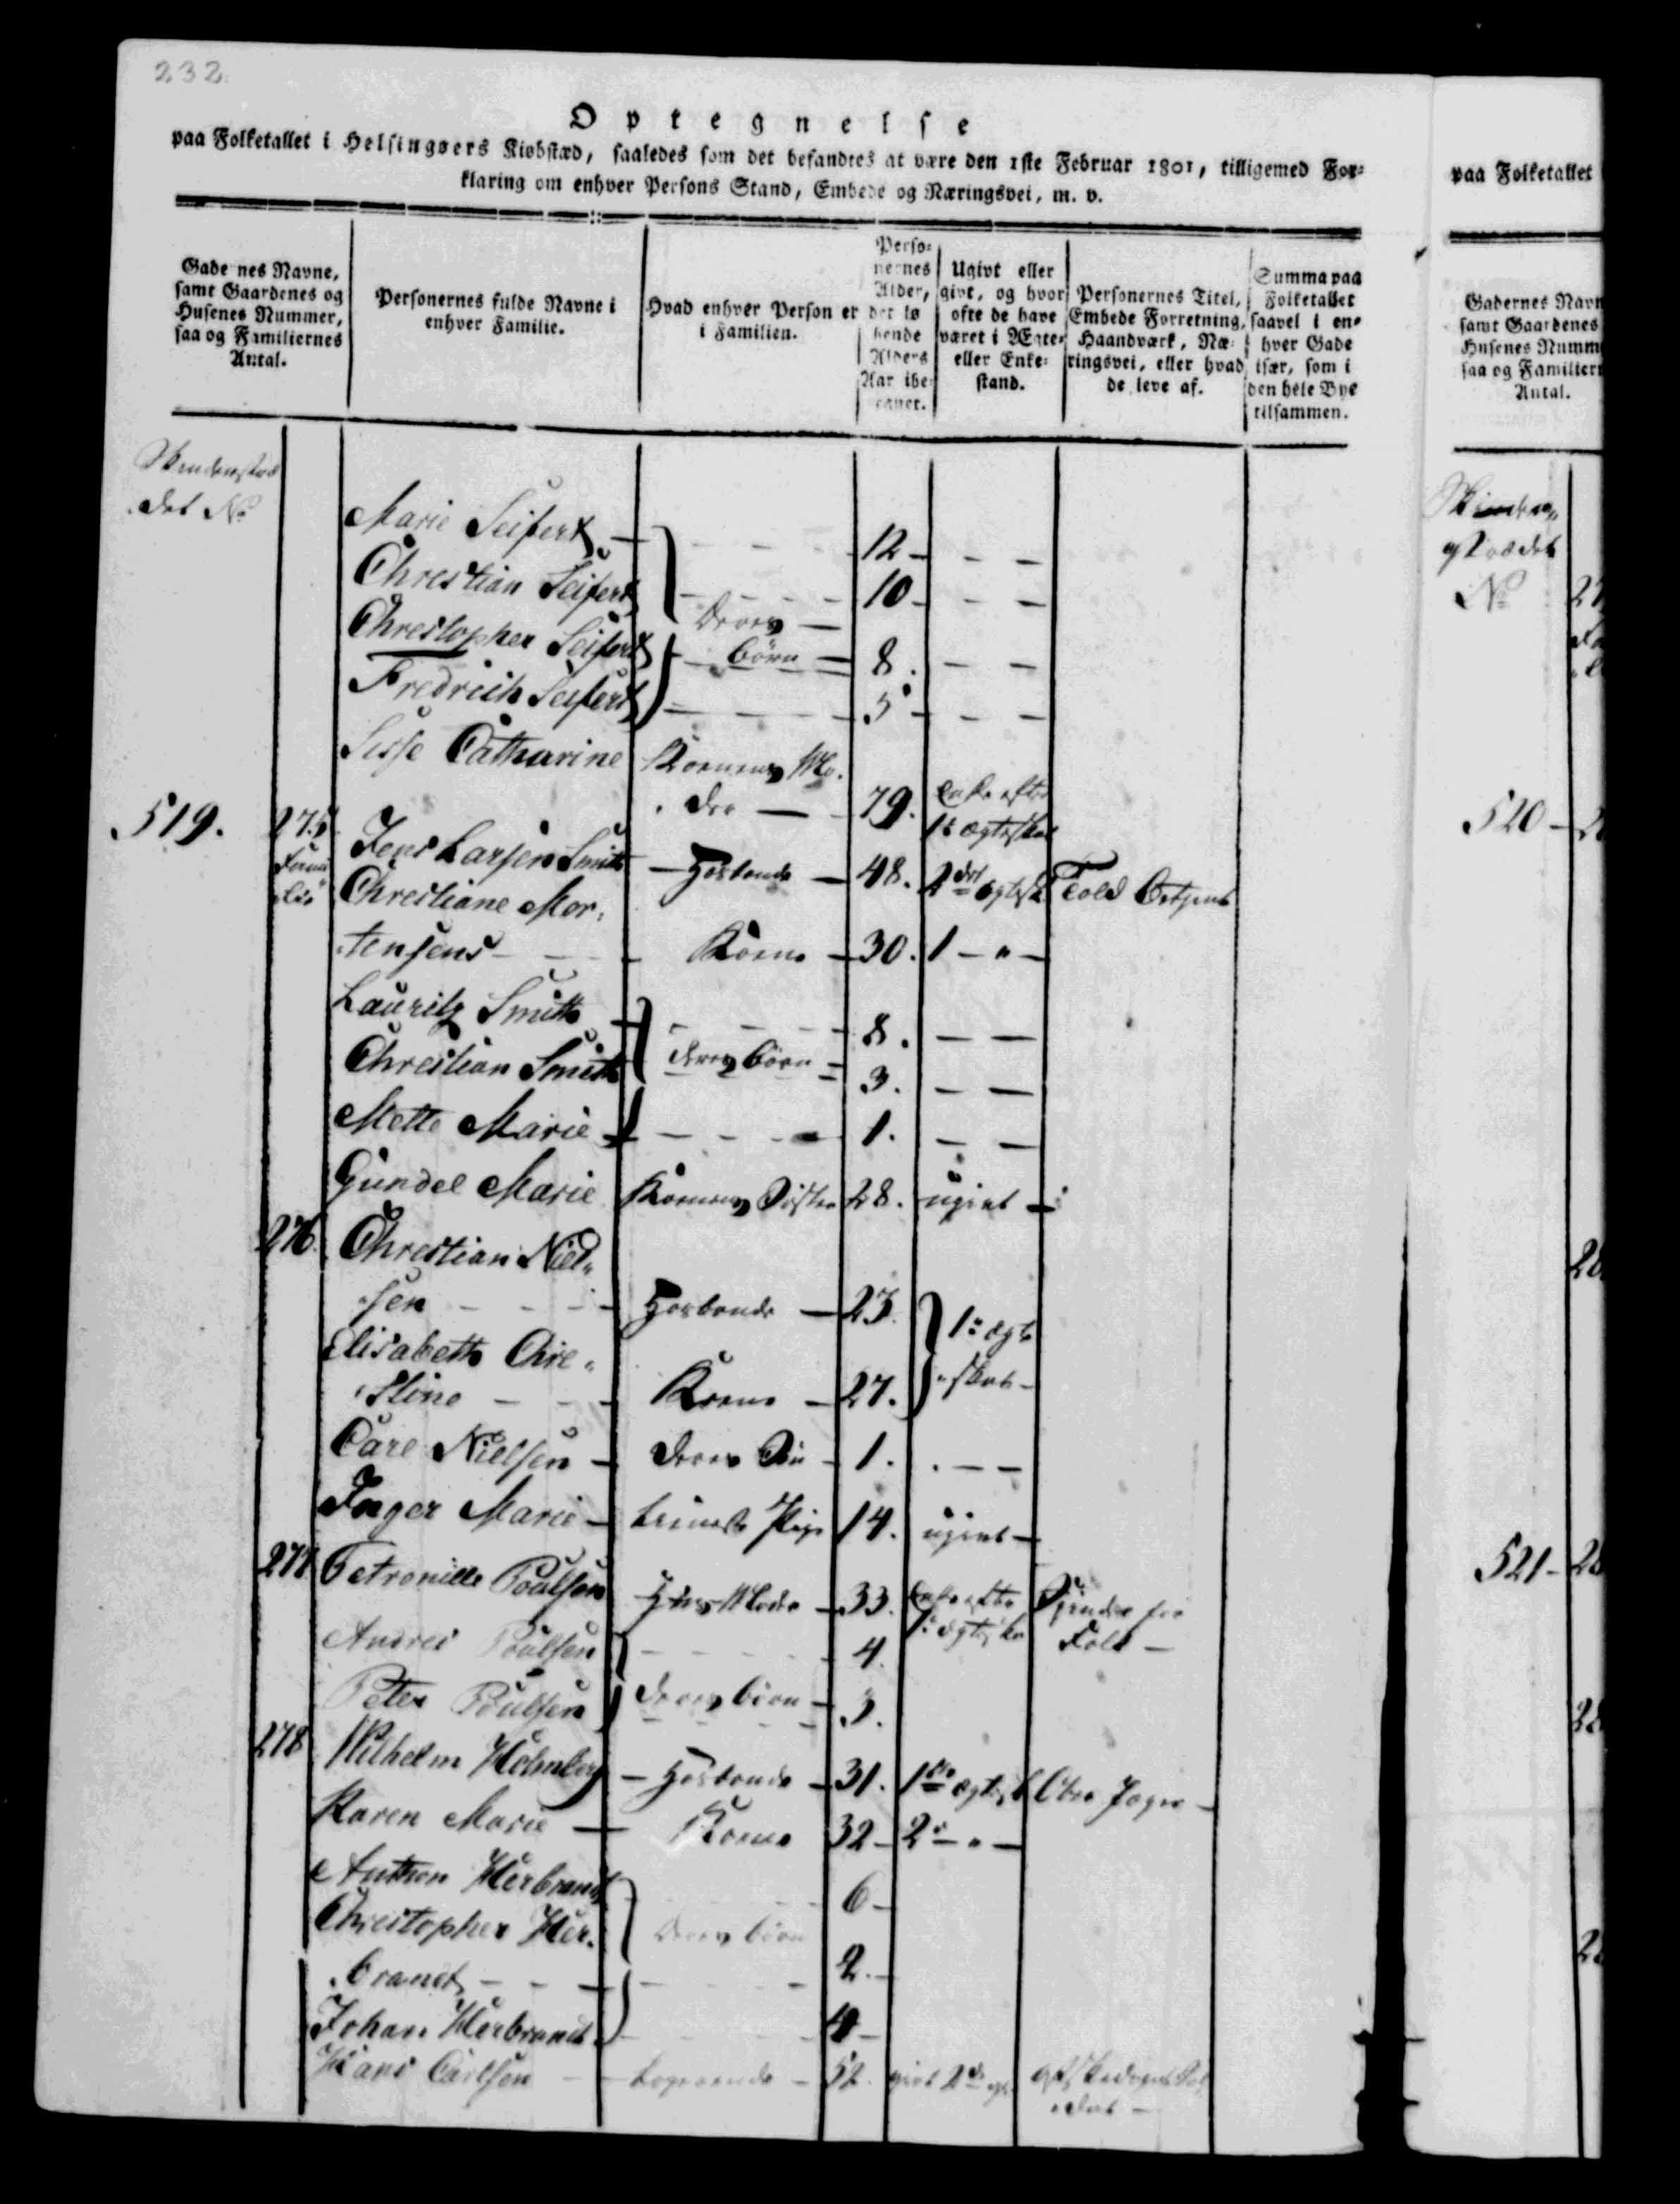 232.
Optegnelse
paa Folketallet i Helsingøers Kiøbstæd, saaledes som det befandtes at være den 1ste Februar 1801, tilligemed For-
klaring om enhver Persons Stand, Embede og Næringsvei, m. v.
Gade nes Navne, samt Gaardenes og Husenes Nummer, saa og Familiernes Antal.
Personernes fulde Navne i enhver Familie.
Hvad enhver Person er i Familien.
Perso-nernes Alder, det lø bende Alders Aar ibe-egnet.
Ugivt eller givt, og hvor ofte de have været i Ægte- eller Enke-stand.
Personernes Titel, Embede Forretning, Haandværk, Næ-ringsvei, eller hvad de leve af.
Summa paa Folketallet saavel i en-hver Gade især, som i den hele Bye tilsammen.
det No
Marie Seifert — 12 — —
Christian Seifert 10 — —
Christopher Seifert Deres Børn 8. — —
Fredrich Seifert 5 — —
Sisse Catharine Konens Mo.
der — 79. Enke efter
1t ægteskab
519. 275 Jens Larsen Smith — Hosbonde — 48. 2det Told
Fami
lie Christiane Mor,
tensens — Kone — 30. 1 — " —
Lauritz Smith — 8. — —
Christian Smith deres Børn 3. — —
Mette Marie — 1. — —
Gundel Marie Konens Søster 28. ugivt —
276. Christian Niel„
sen — Hosbonde — 23. 1t ægte
Elisabeth Chri„
stine — Kone — 27. „skab —
Carl Nielsen — deres Søn — 1. — —
Inger Marie — Pige 14. ugivt —
277 Petronille Poulsen Huus Moder — 33. Enke efter Spinder for
1t ægtesk Folk —
Andres Poulsen 4.
Peter Poulsen deres børn — 3.
278 Wilhelm Holmberg — Hosbonde — 31. 1te ægtesk
Karen Marie — Kone 32 — 2 — " —
Anthon Herbrandt 6 —
Christopher Her.
brandt — deres børn 2. —
Johan Herbrandt 4 —
Hans Carlsen — Logerende — 52. givt 2de
paa Folketallet
Gadernes Navn
samt Gaardenes
Husenes Numm
saa og Familiern
Antal.
No
520 —
521 —